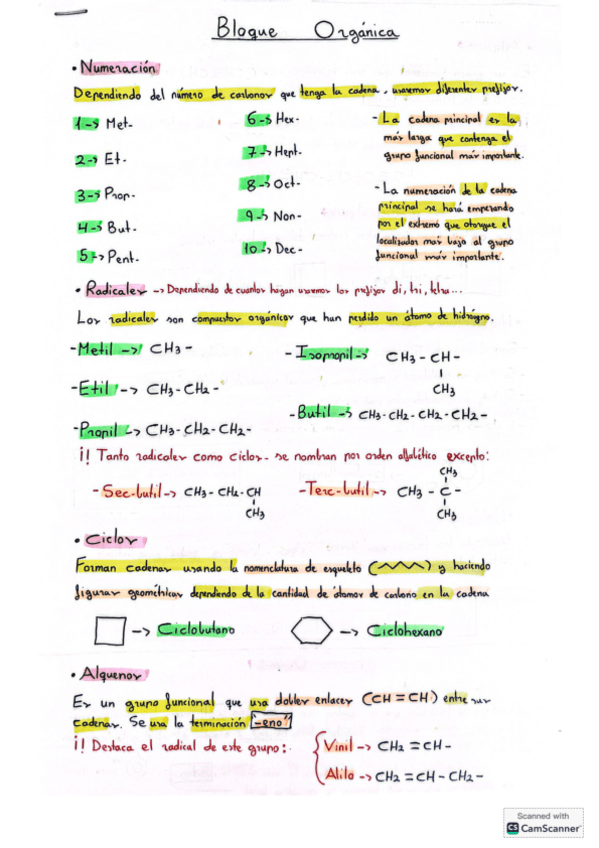 Bloque Orgánica
• Numeración
Dependiendo del número de carbonos que tenga la cadena, usaremos diferentes prefijos.
1 -> Met-
2 -> Et-
3 -> Prop-
4 -> But-
5 -> Pent-
6 -> Hex-
7 -> Hept-
8 -> Oct-
9 -> Non-
10 -> Dec-
- La cadena principal es la
más larga que contenga el
grupo funcional más importante.
- La numeración de la cadena
principal se hará empezando
por el extremo que otorgue el
localizador más bajo al grupo
funcional más importante.
• Radicales -> Dependiendo de cuantos hagan usaremos los prefijos di, tri, tetra...
Los radicales son compuestos orgánicos que han perdido un átomo de hidrógeno.
- Metil -> CH3 -
- Etil -> CH3 - CH2 -
- Propil -> CH3 - CH2 - CH2 -
- Isopropil -> CH3 - CH -
CH3
- Butil -> CH3 - CH2 - CH2 - CH2 -
¡! Tanto radicales como ciclos - se nombran por orden alfabético excepto:
- Sec-butil -> CH3 - CH2 - CH
CH3
CH3
- Terc-butil -> CH3 - C -
CH3
• Ciclos
Forman cadenas usando la nomenclatura de esqueleto ( ) y haciendo
figuras geométricas dependiendo de la cantidad de átomos de carbono en la cadena
-> Ciclobutano
-> Ciclohexano
• Alquenos
Es un grupo funcional que usa dobles enlaces (CH = CH) entre sus
cadenas. Se usa la terminación "-eno"
¡! Destaca el radical de este grupo:
Vinil -> CH2 = CH -
Alilo -> CH2 = CH - CH2 -
Scanned with
CS CamScanner